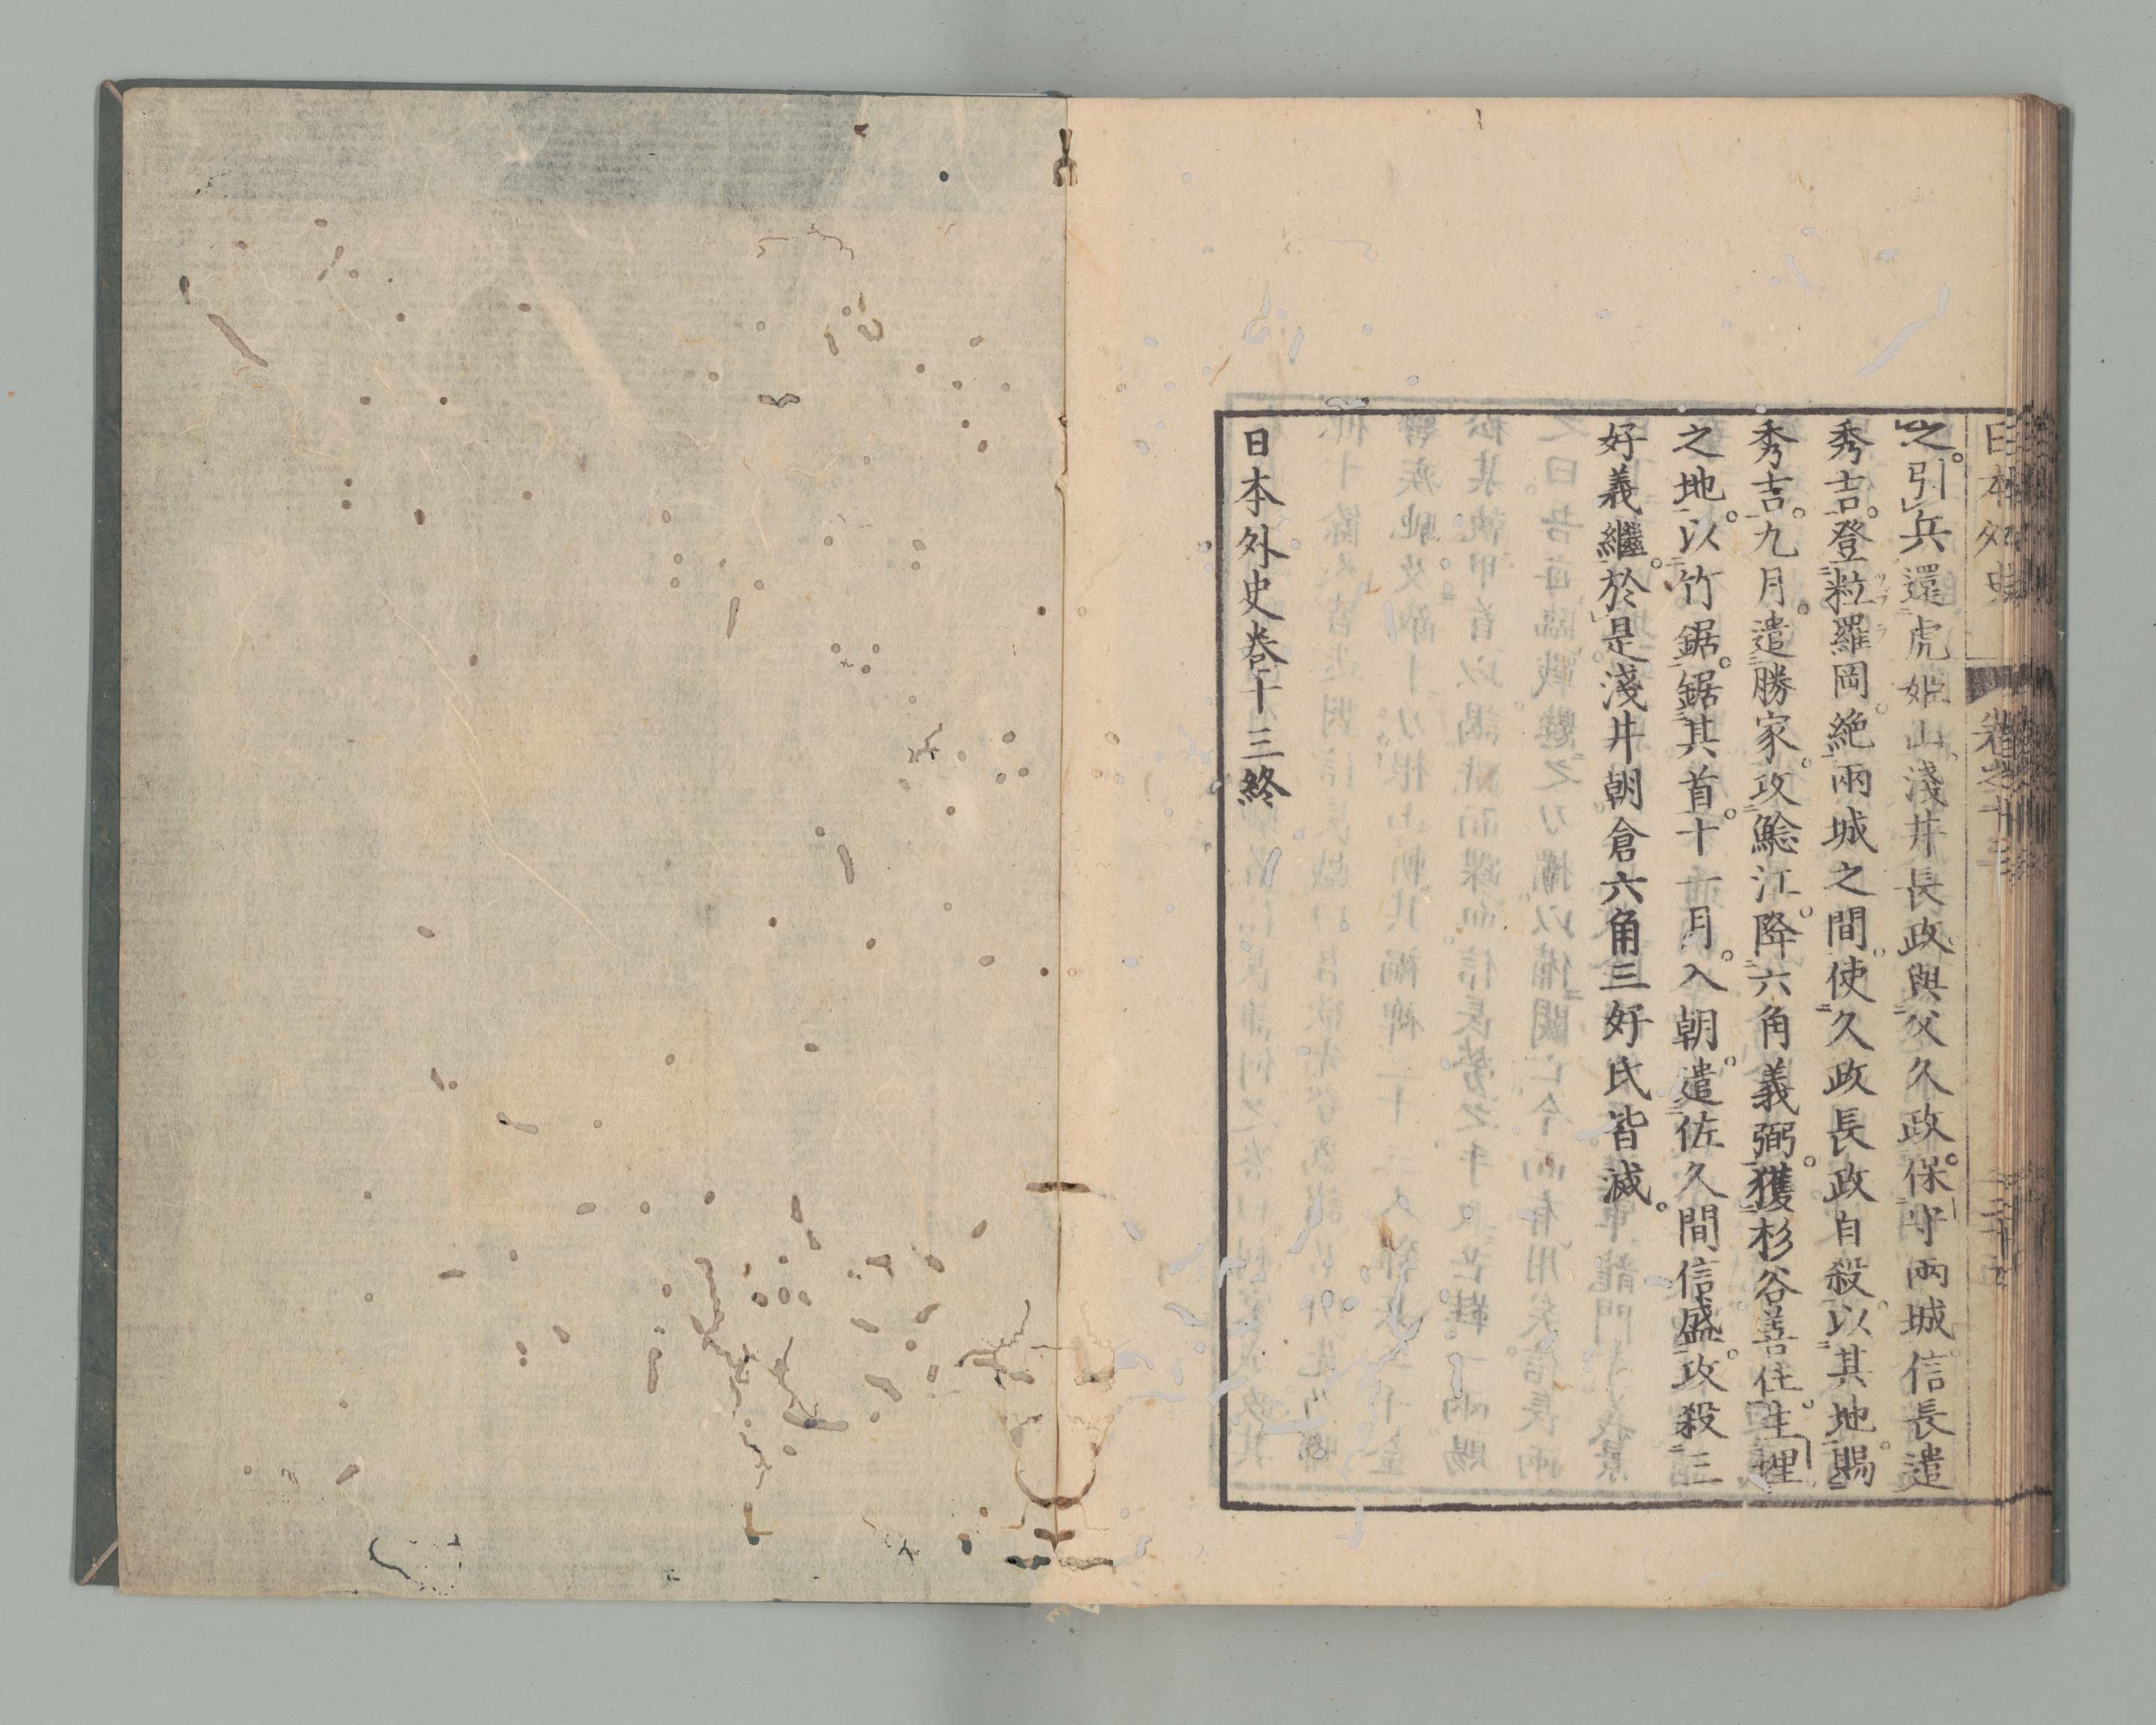 日本外史 卷之十三
之。引兵還虎姫山。淺井長政與父久政。保守兩城。信長遣
秀吉。登粒羅岡。絶兩城之間。使久政長政自殺。以其地。賜
秀吉。九月。遣勝家。攻鯰江。降六角義弼。獲杉谷善住。生埋
之地。以竹鋸。鋸其首。十一月。入朝。遣佐久間信盛。攻殺三
好義繼。於是淺井朝倉六角三好氏皆滅。
日本外史卷十三終